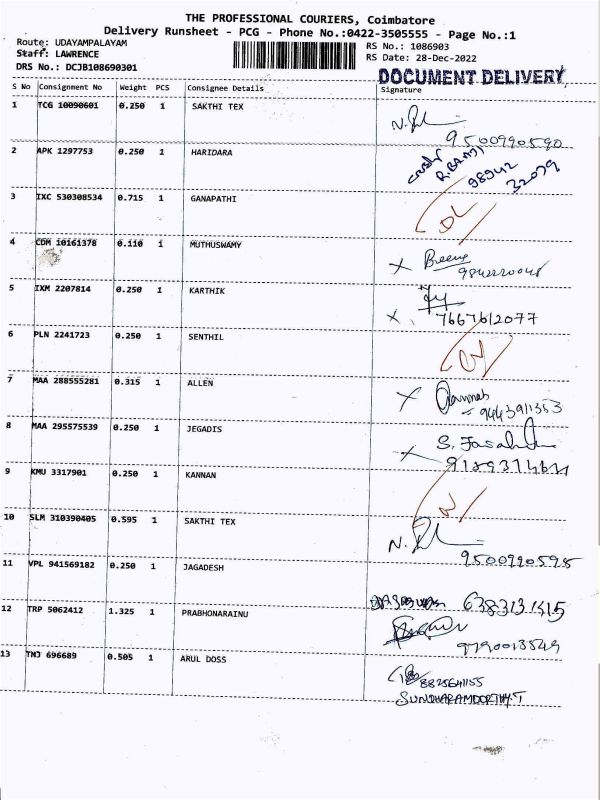 THE PROFESSIONAL COURIERS, Coimbatore
Delivery Runsheet - PCG - Phone No.:0422-3505555 - Page No.:1
Route: UDAYAMPALAYAM
RS No.: 1086903
Staff: LAWRENCE
RS Date: 28-Dec-2022
DRS No.: DCJB108690301
DOCUMENT DELIVERY
S No Consignment No Weight PCS Consignee Details Signature
1 TCG 10090601 0.250 1 SAKTHI TEX
9500990590
2 APK 1297753 0.250 1 HARIDARA
98942
32079
3 IXC 530308534 0.715 1 GANAPATHI
4 CDM 10161378 0.110 1 MUTHUSWAMY
5 IXM 2207814 0.250 1 KARTHIK
7667612077
6 PLN 2241723 0.250 1 SENTHIL
7 MAA 288555281 0.315 1 ALLEN
9443911353
8 MAA 295575539 0.250 1 JEGADIS
9 KMU 3317901 0.250 1 KANNAN
10 SLM 310390405 0.595 1 SAKTHI TEX
9500990595
11 VPL 941569182 0.250 1 JAGADESH
6383131415
12 TRP 5062412 1.325 1 PRABHONARAINU
9790013549
13 TNJ 696689 0.505 1 ARUL DOSS
8825641155
SUNDHARAMOORTHY.T